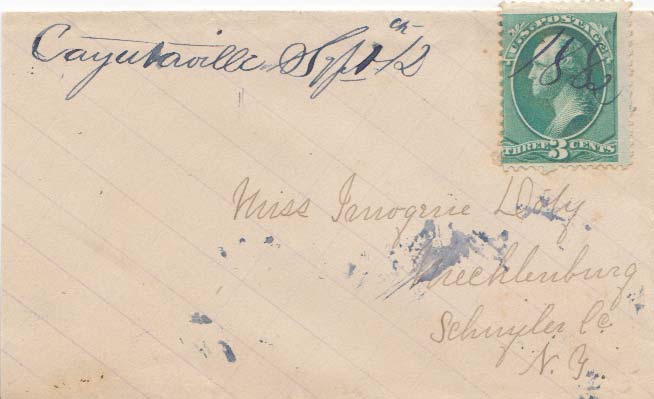 Cayutaville Sept 12th
U.S. POSTAGE
188
THREE 3 CENTS
Miss Imogene Doty
Mecklenburg
Schuyler Co
N. Y.